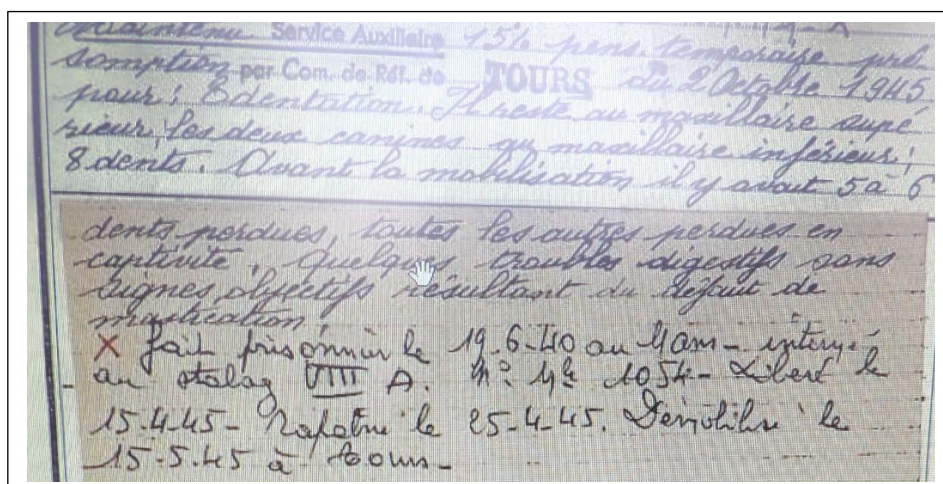 Maintenu Service Auxiliaire 15% pens. temporaire pré
somption par Com. de Réf. de TOURS du 2 Octobre 1945
pour : Edentation. Il reste au maxillaire supé
rieur, les deux canines au maxillaire inférieur ;
8 dents. Avant la mobilisation il y avait 5 à 6
dents perdues, toutes les autres perdues en
captivité. Quelques troubles digestifs sans
signes objectifs résultant du défaut de
mastication,
X fait prisonnier le 19.6.40 au Mans - interné
au stalag VIII A. N° 1054 - Libéré le
15.4.45 - Rapatrié le 25-4-45. Démobilisé le
15.5.45 à Tours -